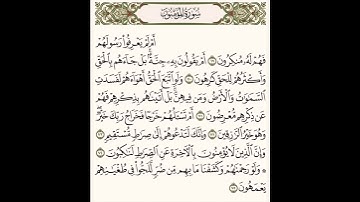 سُورَةُ المُؤْمِنُونَ
أَمْ لَمْ يَعْرِفُوا۟ رَسُولَهُمْ
فَهُمْ لَهُۥ مُنكِرُونَ ٦٩ أَمْ يَقُولُونَ بِهِۦ جِنَّةٌۢ ۚ بَلْ جَآءَهُم بِٱلْحَقِّ
وَأَكْثَرُهُمْ لِلْحَقِّ كَـٰرِهُونَ ٧٠ وَلَوِ ٱتَّبَعَ ٱلْحَقُّ أَهْوَآءَهُمْ لَفَسَدَتِ
ٱلسَّمَـٰوَٰتُ وَٱلْأَرْضُ وَمَن فِيهِنَّ ۚ بَلْ أَتَيْنَـٰهُم بِذِكْرِهِمْ فَهُمْ
عَن ذِكْرِهِم مُّعْرِضُونَ ٧١ أَمْ تَسْـَٔلُهُمْ خَرْجًا فَخَرَاجُ رَبِّكَ خَيْرٌ ۖ
وَهُوَ خَيْرُ ٱلرَّٰزِقِينَ ٧٢ وَإِنَّكَ لَتَدْعُوهُمْ إِلَىٰ صِرَٰطٍ مُّسْتَقِيمٍ ٧٣
وَإِنَّ ٱلَّذِينَ لَا يُؤْمِنُونَ بِٱلْـَٔاخِرَةِ عَنِ ٱلصِّرَٰطِ لَنَـٰكِبُونَ ٧٤
۞ وَلَوْ رَحِمْنَـٰهُمْ وَكَشَفْنَا مَا بِهِم مِّن ضُرٍّ لَّلَجُّوا۟ فِى طُغْيَـٰنِهِمْ
يَعْمَهُونَ ٧٥